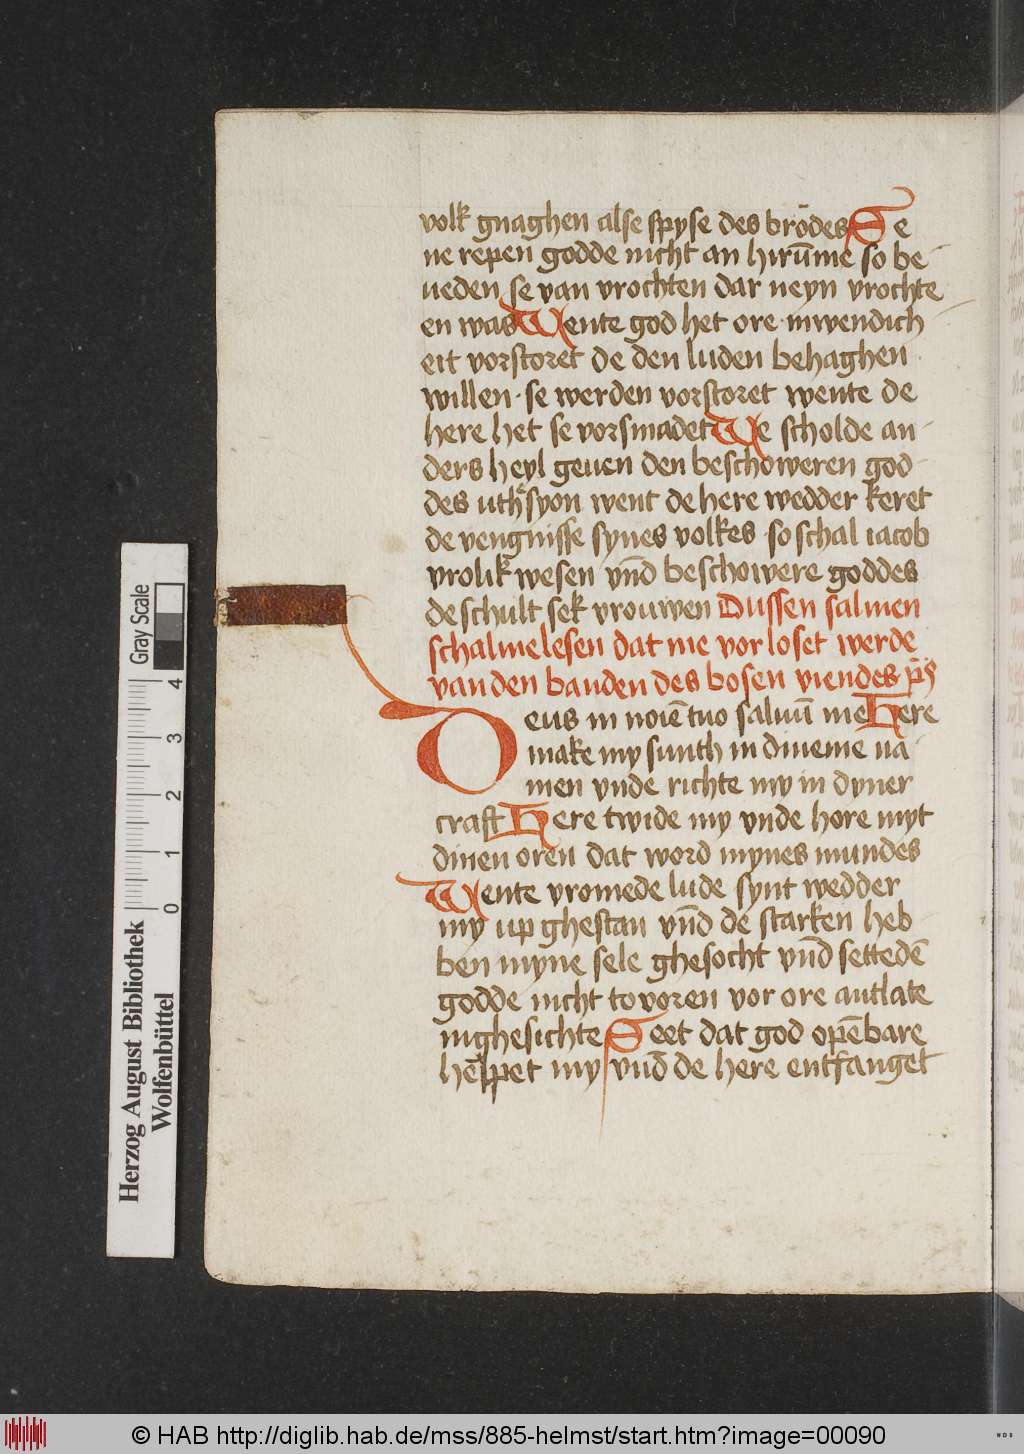 volk gnaghen alse spyse des brōdes Se
ne repen godde nicht an hirūme so be
ueden se van vrochten dar neyn vrochte
en was Wente god het ore inwendich
eit vorstoret de den luden behaghen
willen · se werden vorstoret wente de
here het se vorsmadet We scholde an
ders heyl geuen den beschoweren god
des uth syon went de here wedder keret
de vengnisse synes volkes · so schal iacob
vrolik wesen vn̄d beschowere goddes
de schult sek vrouwen Dussen salmen
schalme lesen dat me vorloset werde
van den banden des bosen viendes p̄s
Deus in noīe tuo saluū me Here
make my sunth in dineme na
men vnde richte my in dyner
craft Here twide my vnde hore myt
dinen oren dat word mynes mundes
Wente vromede lude synt wedder
my up ghestan vn̄d de starken heb
ben myne sele ghesocht vn̄d settedē
godde nicht tovoren vor ore antlate
nighesichte Seet dat god opēbare
hēlpet my vn̄d de here entfanget
Herzog August Bibliothek
Wolfenbüttel
Gray Scale
0 1 2 3 4
© HAB http://diglib.hab.de/mss/885-helmst/start.htm?image=00090